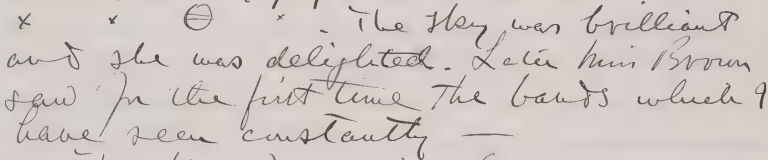 x x ⊖ x . The sky was brilliant
and she was delighted. Later Miss Brown
saw for the first time the bands which I
have seen constantly —